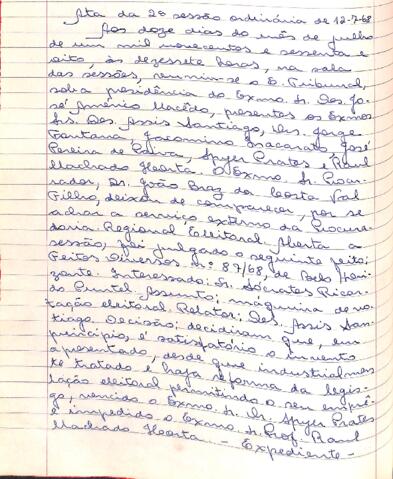 Ata da 2ª sessão ordinária de 12-7-68
Aos doze dias do mês de julho
de um mil novecentos e sessenta e
oito, às dezessete horas, na sala
das sessões, reuniu-se o E. Tribunal,
sob a presidência do Exmo. Sr. Des. Jo-
sé Américo Macêdo, presentes os Exmos
Srs. Des. Assis Santiago, Drs. Jorge
Fontana, Jacomino Inacarato, José
Pereira de Paiva, Spyer Prates e Raul
Machado Horta. O Exmo. Sr. Procu-
rador, Dr. João Braz da Costa Val
Filho, deixou de comparecer, por se
achar a serviço externo da Procura-
doria Regional Eleitoral. Aberta a
sessão, foi julgado o seguinte feito:
Feitos Diversos n.º 87/68, de Belo Hori-
zonte. Interessado: Sr. Sócrates Ricar-
do Puntel. Assunto: máquina de vo-
tação eleitoral. Relator: Des. Assis San-
tiago. Decisão: decidiram que, em
princípio, é satisfatório o invento
apresentado, desde que industrialmen
te tratado e haja reforma da legis-
lação eleitoral permitindo o seu emprê-
go, vencido o Exmo. Sr. Dr. Spyer Prates
e impedido o Exmo. Sr. Prof. Raul
Machado Horta. - Expediente -